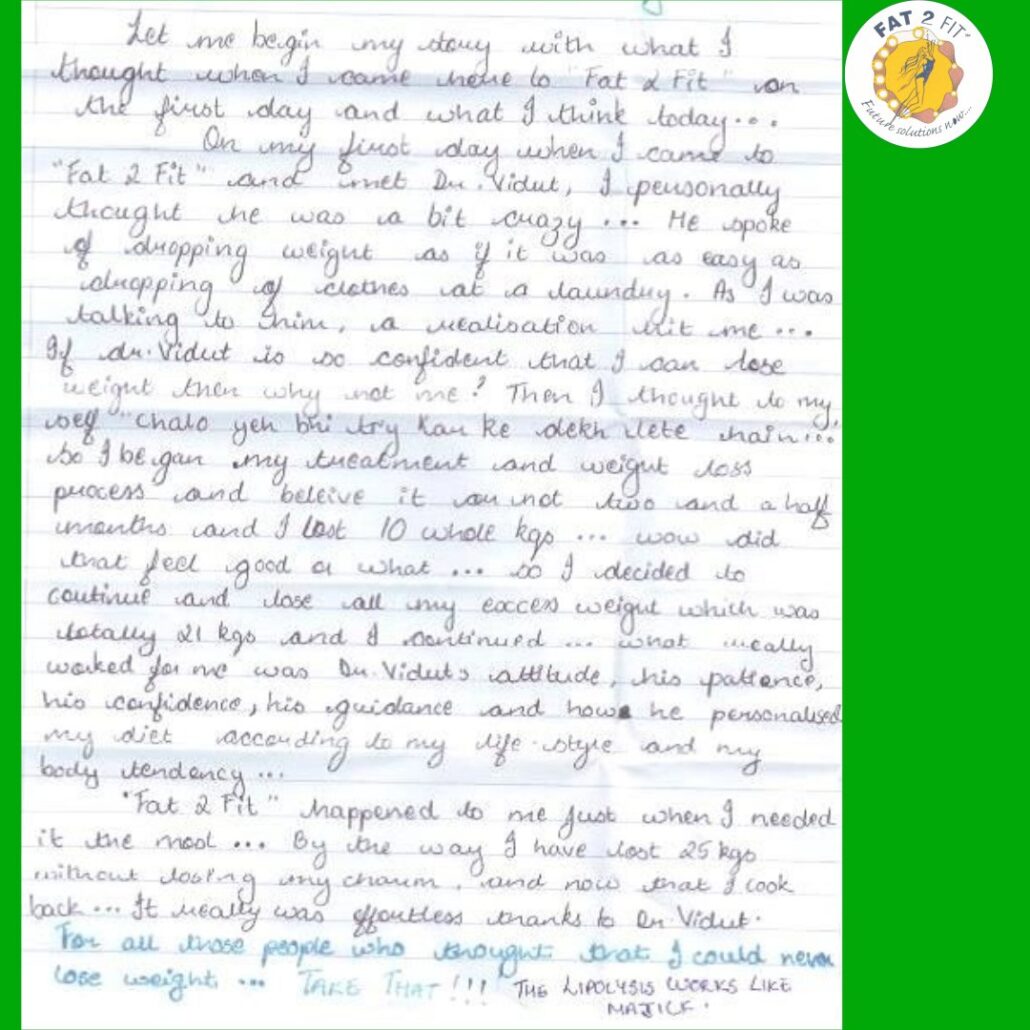 Let me begin my story with what I
thought when I came here to "Fat 2 Fit" on
the first day and what I think today...
On my first day when I came to
"Fat 2 Fit" and met Dr. Vidut, I personally
thought he was a bit crazy ... He spoke
of dropping weight as if it was as easy as
dropping of clothes at a laundry. As I was
talking to him, a realisation hit me ...
If dr. Vidut is so confident that I can lose
weight then why not me? Then I thought to my
self "Chalo yeh bhi try kar ke dekh lete hain...
so I began my treatment and weight loss
process and beleive it or not two and a half
months and I lost 10 whole kgs ... wow did
that feel good or what ... so I decided to
continue and lose all my excess weight which was
totally 21 kgs and I continued ... what really
worked for me was Dr. Vidut's attitude, his patience,
his confidence, his guidance and how he personalised
my diet according to my life-style and my
body tendency ...
"Fat 2 Fit" happened to me just when I needed
it the most ... By the way I have lost 25 kgs
without losing my charm. and now that I look
back ... It really was effortless thanks to Dr. Vidut.
For all those people who thought that I could never
lose weight ... TAKE THAT!!! THE LIPOLYSIS WORKS LIKE
MAJICK.
FAT 2 FIT
Future solutions now...